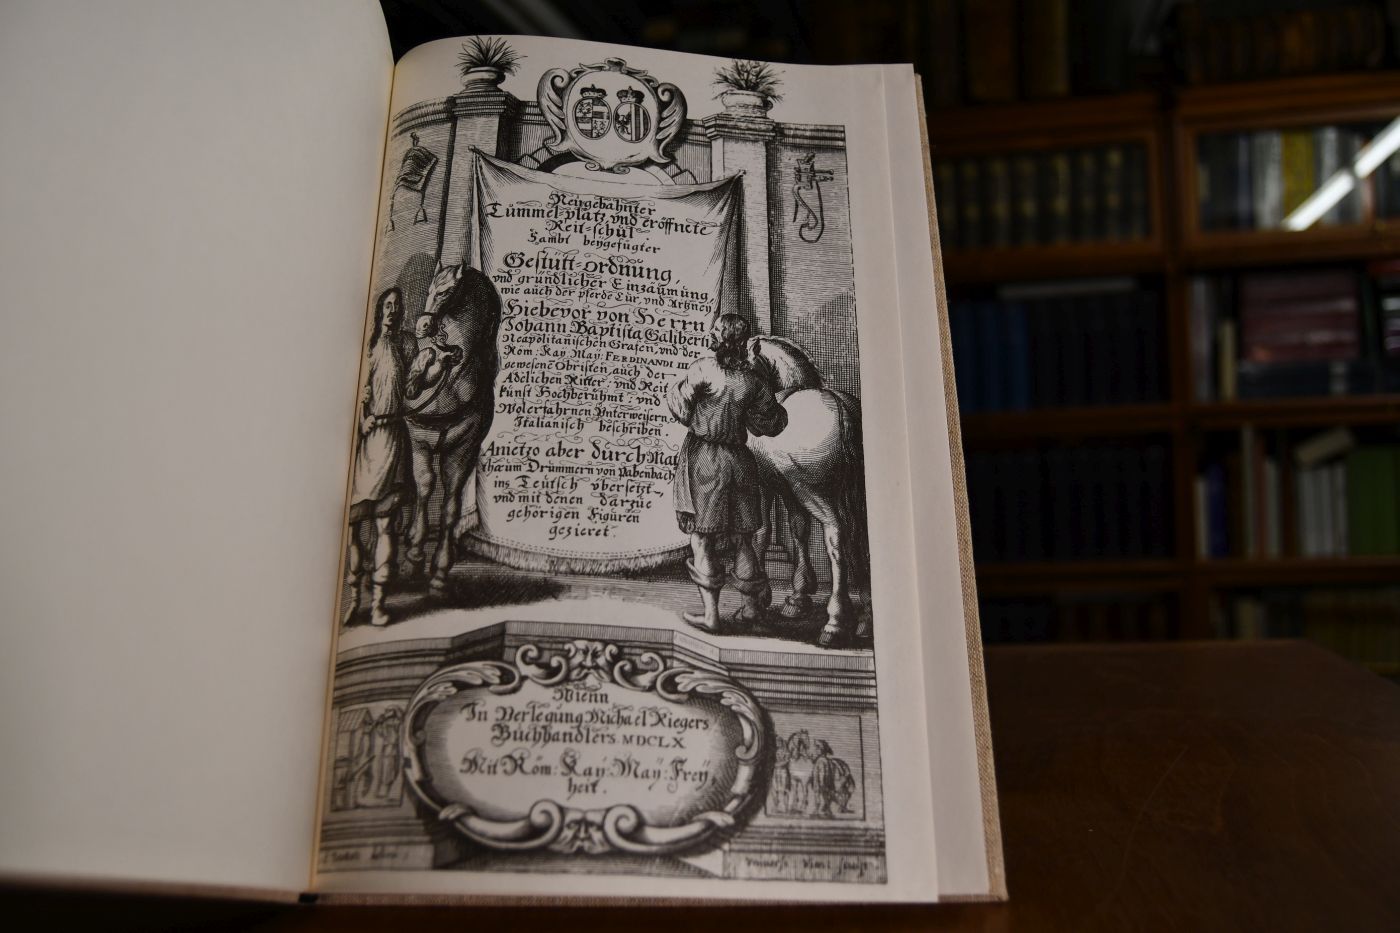 Neügebahnter
Tümmel-platz vnd eröffnete
Reit-schül.
Sambt beÿgefügter
Gestütt-ordnüng,
vnd gründlicher Einzäümüng,
wie auch der pferde Cür, vnd Artzneÿ
Hiebevor von Herrn
Johann Baptista Galiberti
Neapolitanischen Grafen, vnd der
Röm: Kaÿ: Maÿ: FERDINANDI III
gewesene Obristen, auch der
Adelichen Ritter: vnd Reit
künst Hochberühmt: vnd
Wolerfahrnen Vnterweisern
Italianisch beschriben.
Anietzo aber dürch Mat
thæum Drümmern von Pabenbach
ins Teütsch vbersetzt,
vnd mit denen darzüe
gehörigen Figüren
gezieret.
Wienn
In Verlegüng Michael Riegers
Büchhandlers. MDCLX
Mit Röm: Kaÿ: Maÿ: Freÿ
heit.